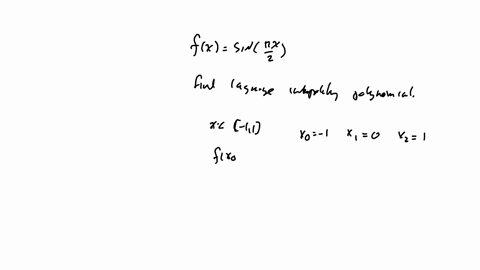 f(x) = sin(πx/2)
Find lagrange interpolating polynomial.
x ∈ [-1,1] x₀=-1 x₁=0 x₂=1
f(x₀